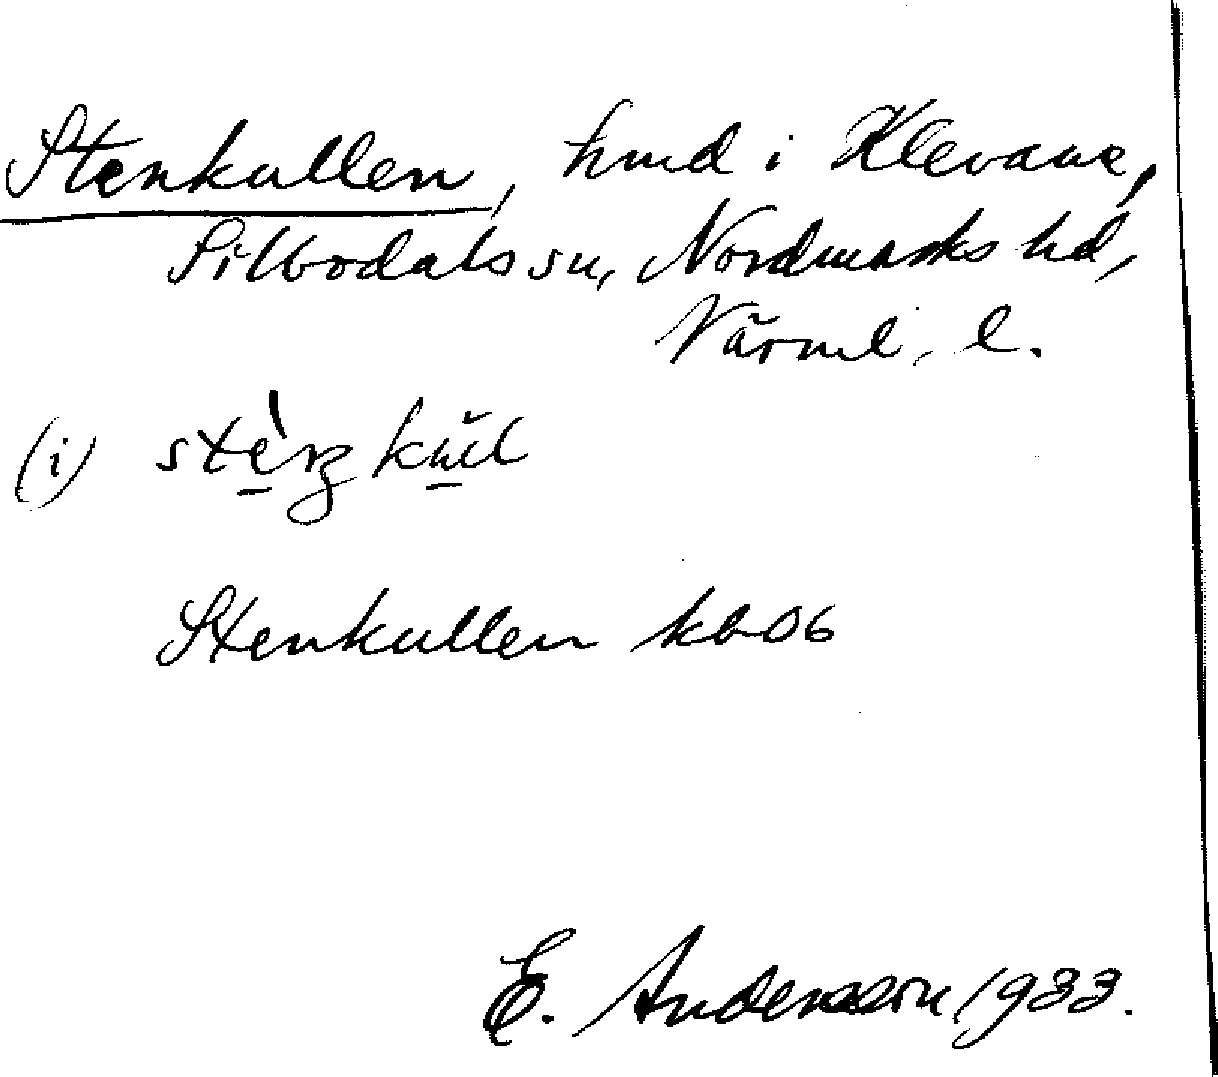 Stenkullen, hmd i Klevane,
Silbodals sn, Nordmarks hd,
Värml. l.
(i)
Stenkullen kb06
E. Andersson 1933.